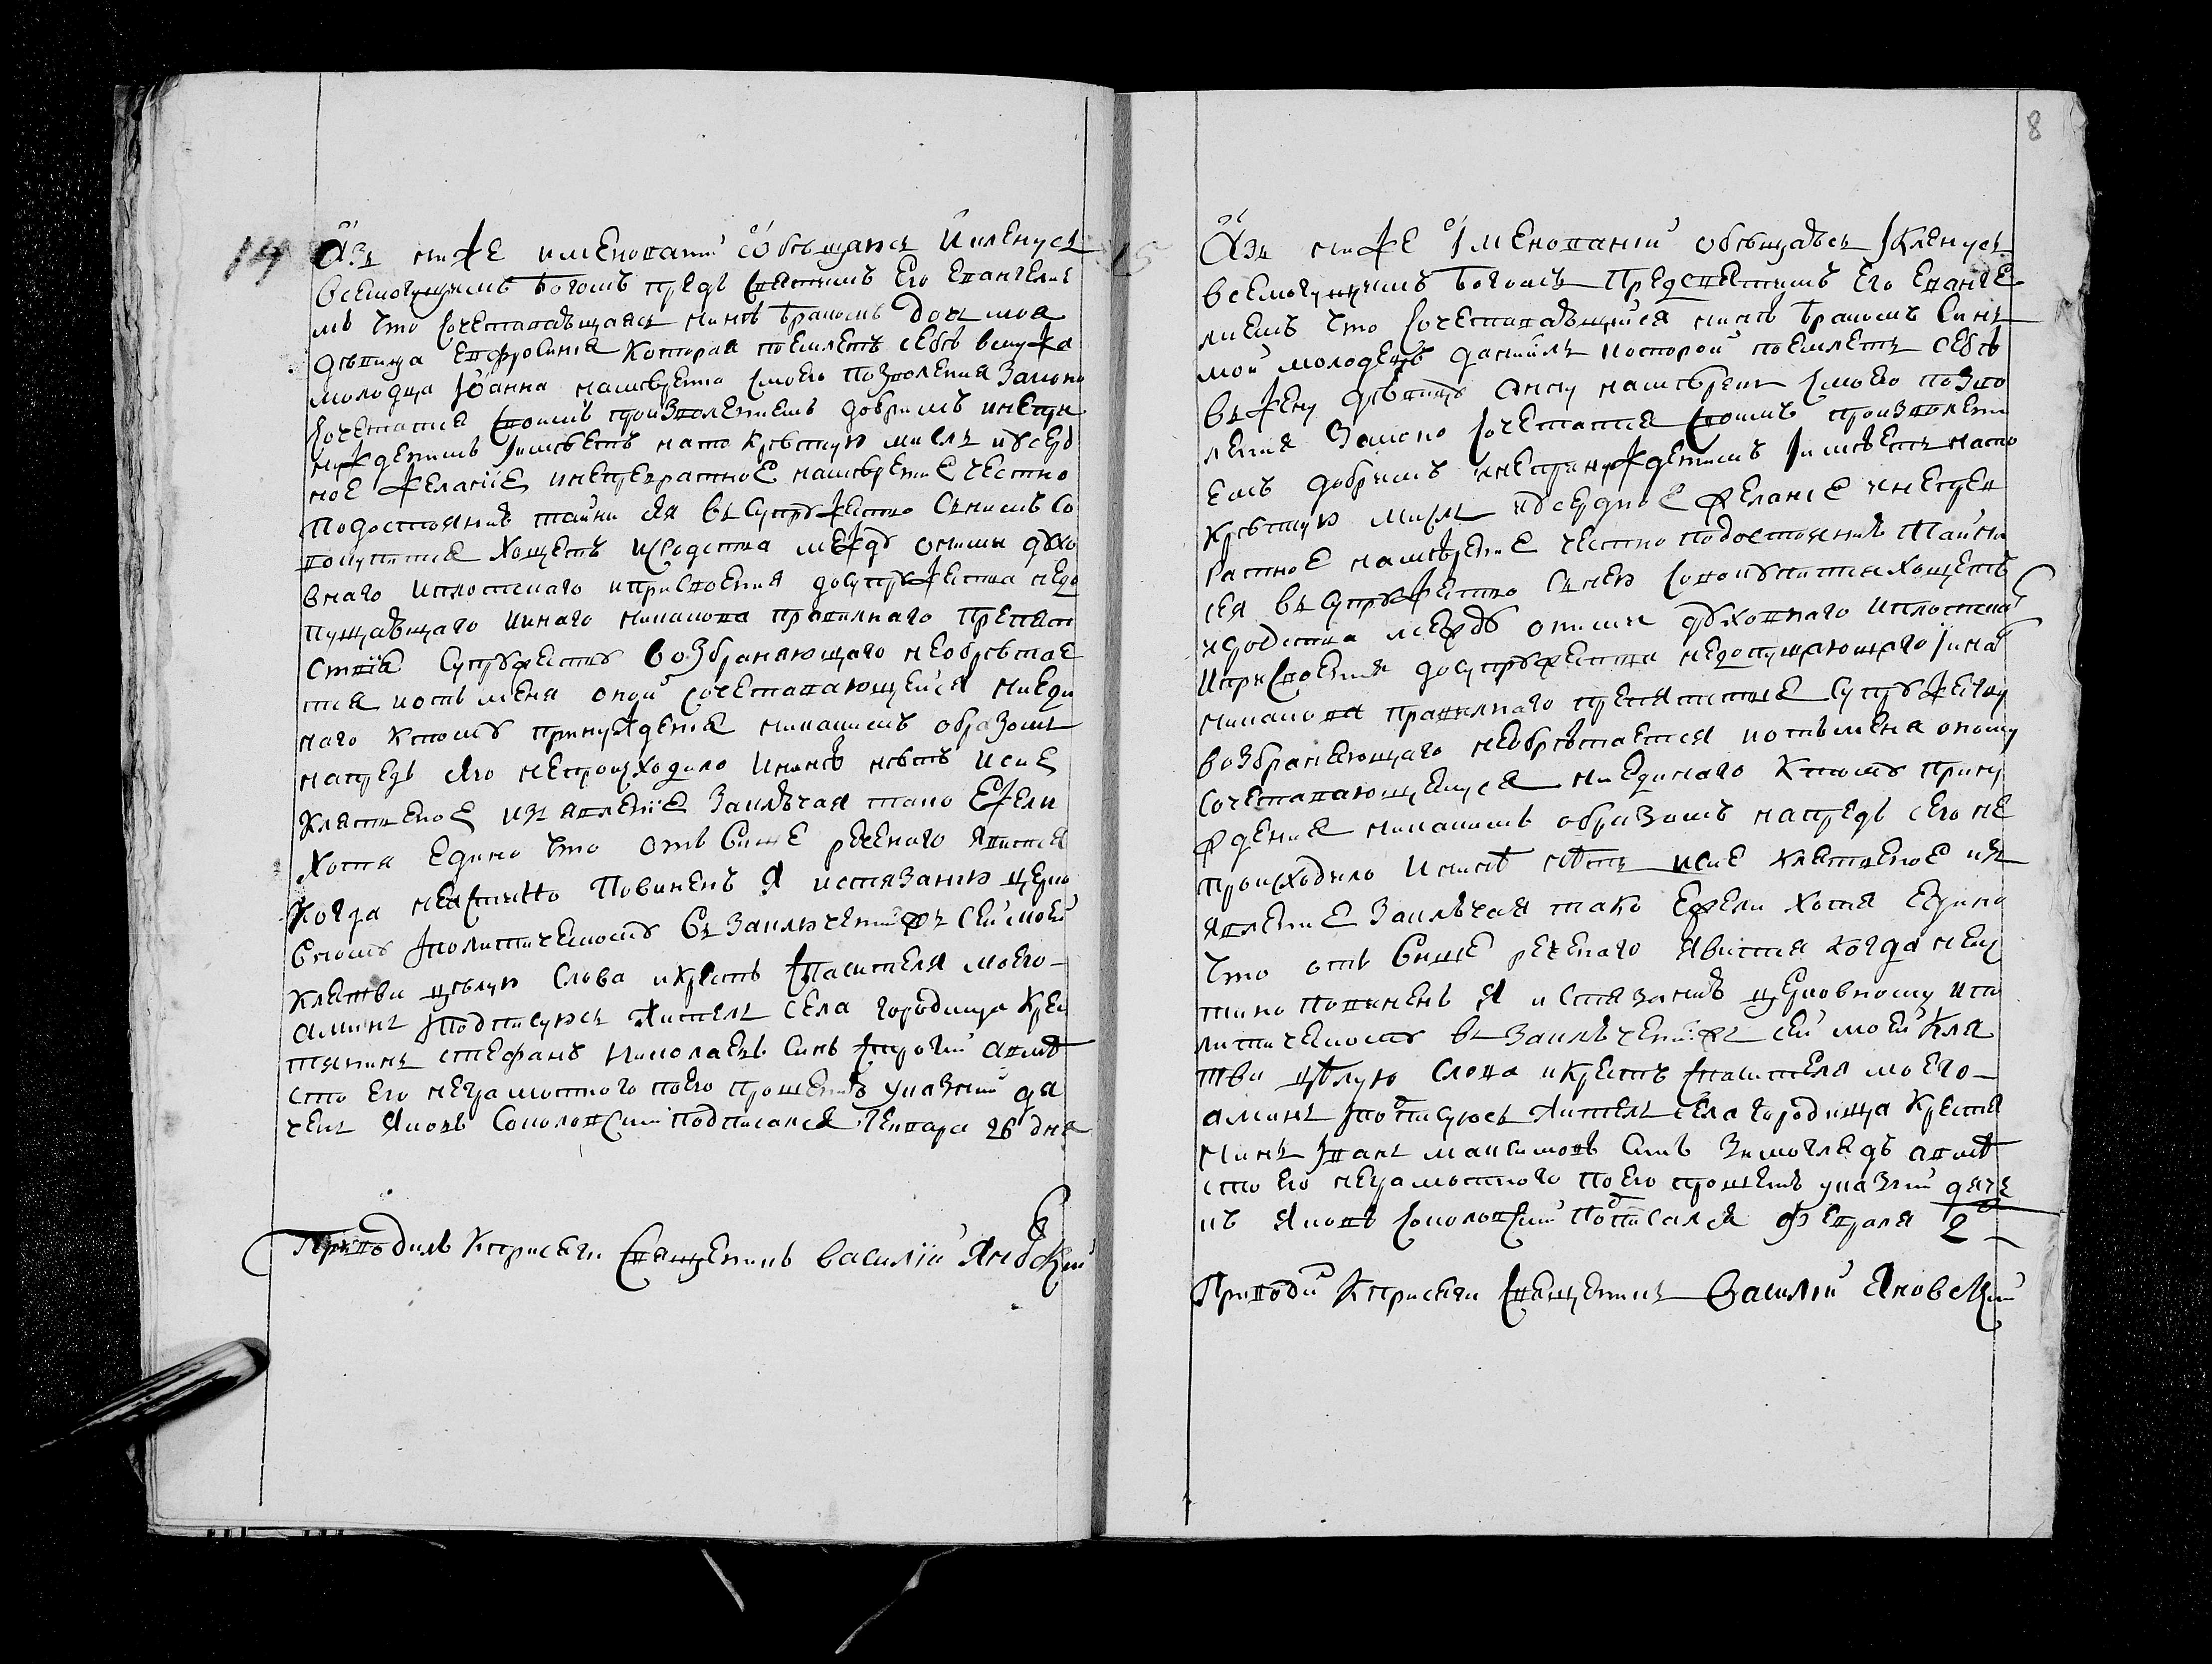 14
Азъ ниже именованій обѣщаюсь и кленусь
всемогущимъ Богомъ предъ святимъ его евангелие
мъ что сочетавающаясь нинѣ бракомъ дочь моя
дѣвица Евфросиния которая поемлетъ себѣ в мужа
молодца Іоанна намѣренно смоего позволения законо
сочетатися своимъ произволениемъ добримъ и непри
нужденимъ і имѣетъ на то крѣпкую мисль и усерд
ное желаніе и непревратное намѣрение честно
по достоянию тайни сея въ супружество сънимъ со
вокупится хощетъ и сродства между оними духо
внаго и плотскаго и присвоения до супружества недо
пущающаго и инаго никакова правилнаго препят
ствия супружеству возбраняющаго необрѣтае
тся и отъ меня оной сочетавающейся ниеди
наго к тому принуждения никакимъ образомъ
напредь сего непроисходило и нинѣ нѣтъ и сие
клятвеное изъявление заключая тако ежели
хотя едино что отъ више реченаго явится
когда неистинно повиненъ я истязанию церко
вному і политическому въ заключениижъ сей моей
клятви цѣлую слова и крестъ спасителя моего
аминь подписуюсь житель села Городища крес
тянинъ Стефанъ Николаевъ синъ а вмѣ
сто его неграмотного по его прошению указний дя
чекъ Яковъ Соколовский подписался генвара 26 дня
Приводилъ к присяги священникъ Василий Яновский
8
15
Азъ ниже іменованний обѣщаюсь і кленусь
всемогущимъ Богомъ пред святимъ его еванге
лиемъ что сочетавающийся нинѣ бракомъ синъ
мой молодецъ Даниилъ которой поемлетъ себѣ
въ жену дѣвицу Анну намѣренъ смоего позво
ления законо сочетатся своимъ произволени
емъ добримъ и непринужденимъ і имѣетъ на то
крѣпкую мисль и усердное желание и непрев
ратное намѣрение честно по достоянию тайни
сея въ супружество съ нею совокупитися хощетъ
и сродства между оними духовнаго и плотска
и присвоения до супружества недопущающаго і ина
никакова правилнаго препятствие супружеству
возбраняющаго необрѣтается и отъ меня оному
сочетавающемуся ниединаго к тому прину
ждения никакимъ образомъ напредь сего не
происходило и нинѣ нѣтъ и сие клятвеное изъ
явление заключая тако ежели хотя едино
что отъ више реченаго явится когда неис
тино повиненъ я истязанию церковному и по
литическому въ заключениижъ сей моей кля
тви цѣлую слова и крестъ спасителя моего
аминь подписуюсь житель села Городища крестя
нинъ Іванъ Максимовъ синъ Зимоглядъ а вмѣ
сто его неграмотного по его прошению указний дяче
къ Яковъ Соколовский подписался февраля 2
Приводи к присяги священникъ Василий Яновский